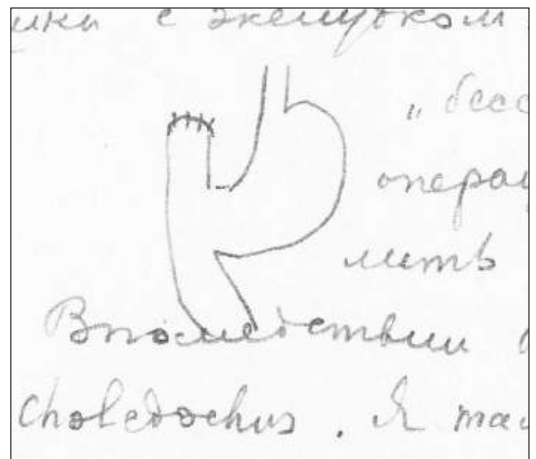 с желудком
„бесс
опера
лить
Впоследствии
choledochus. Я та